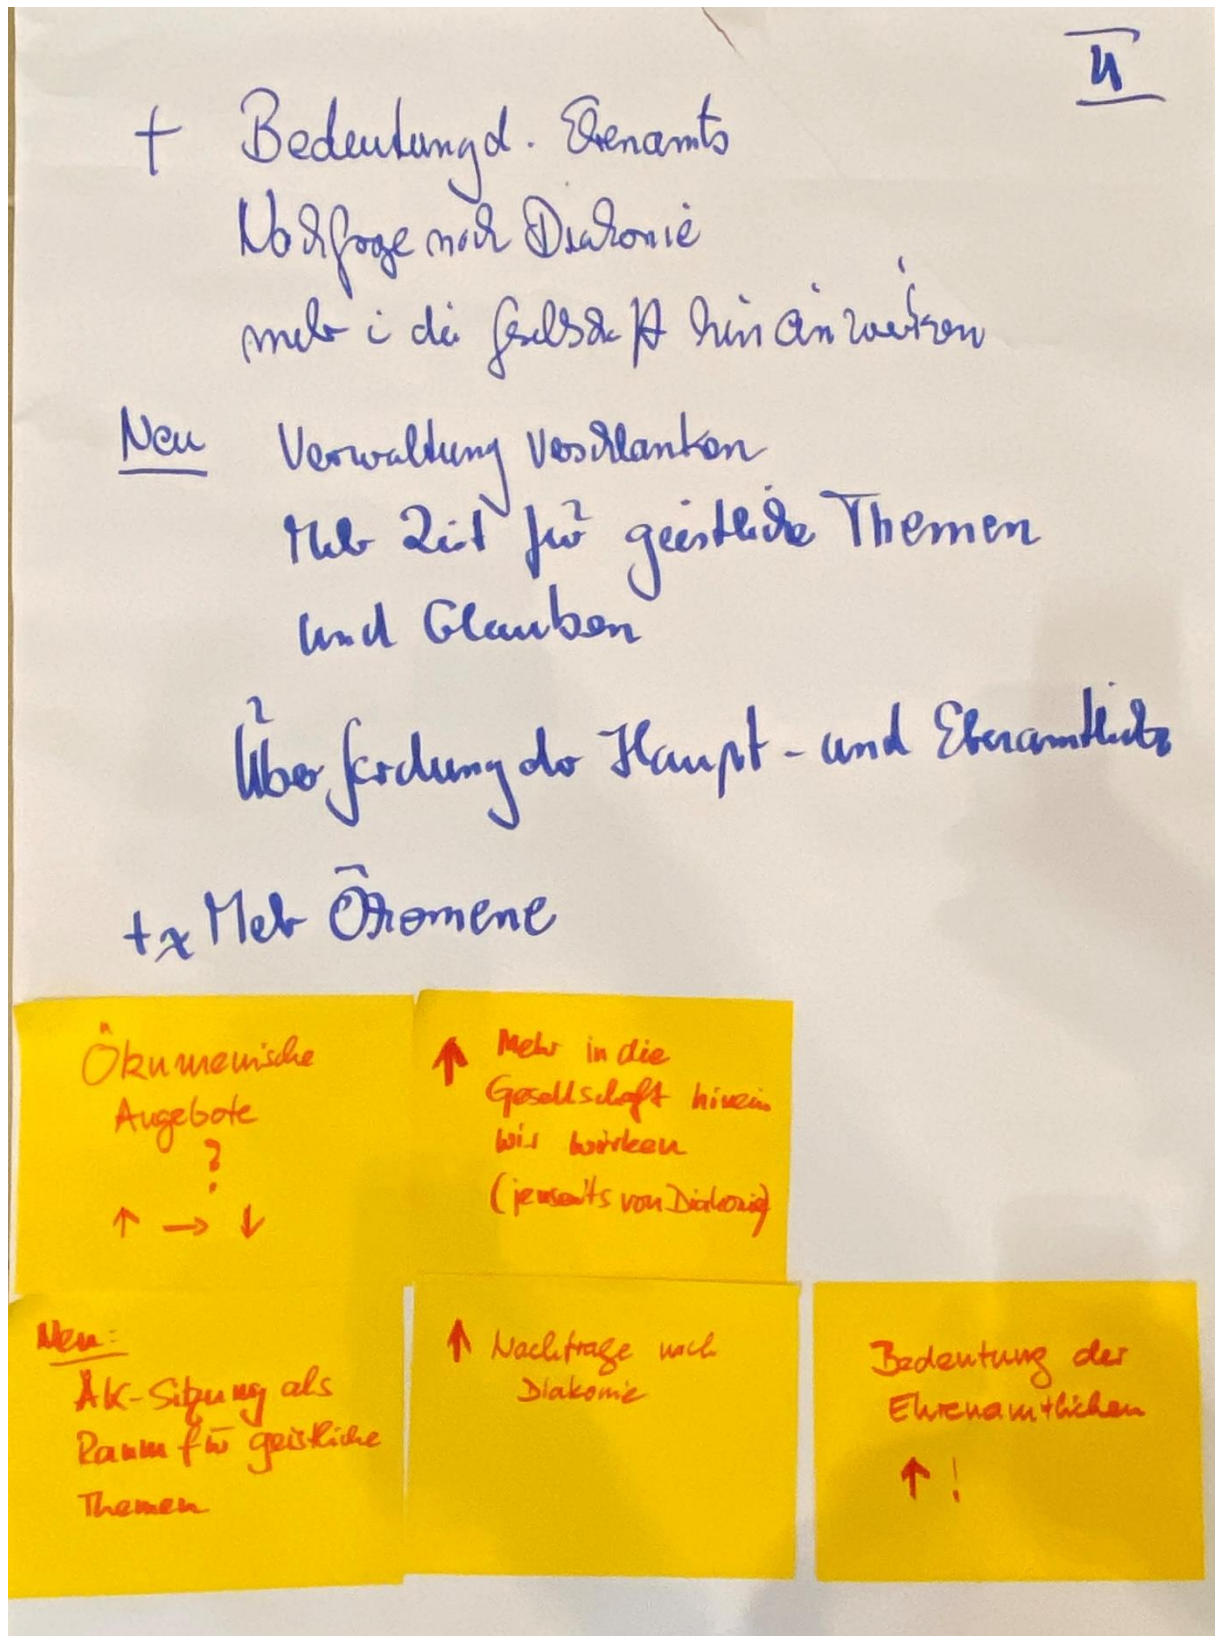 4
+ Bedeutung d. Ehrenamts
Nachfrage nach Diakonie
mehr i die Gesellschaft hineinwirken
Neu Verwaltung verschlanken
Mehr Zeit für geistliche Themen
und Glauben
Überforderung der Haupt- und Ehrenamtliche
+x Mehr Ökomene
Ökumenische
Angebote
?
↑ → ↓
↑ Mehr in die
Gesellschaft hinein
wir wirken
(jenseits von Diakonie)
Neu:
ÄK-Sitzung als
Raum für geistliche
Themen
↑ Nachfrage nach
Diakonie
Bedeutung der
Ehrenamtlichen
↑ !